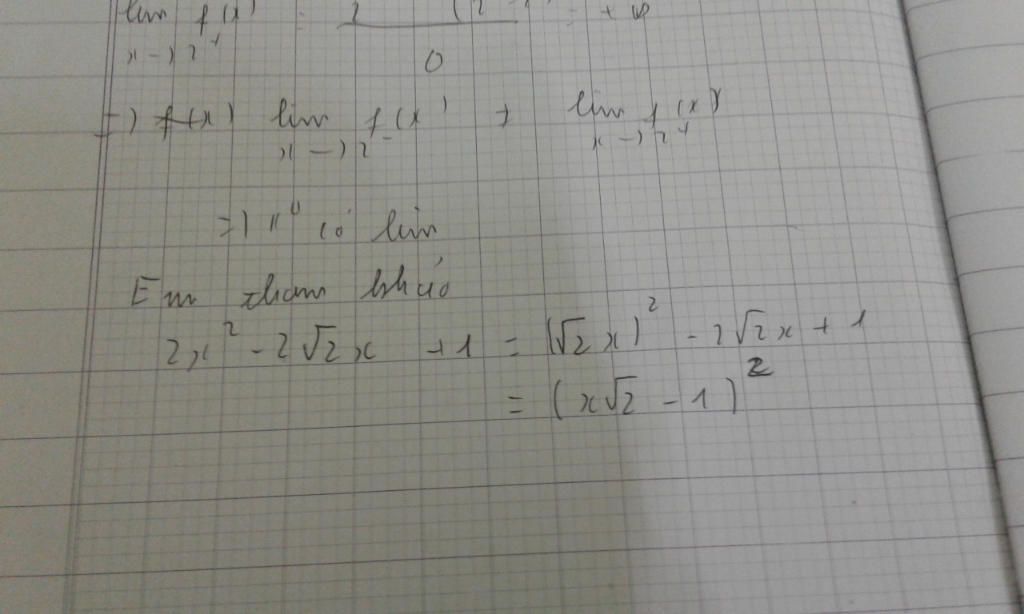 lim f(x) = = +∞
x → 2⁺ 0
⇒ f(x) lim f(x) ≠ lim f(x)
x → 2⁻ x → 2⁺
⇒ có lim
Em tham khảo
2x² - 2√2x + 1 = (√2x)² - 2√2x + 1
= (x√2 - 1)²